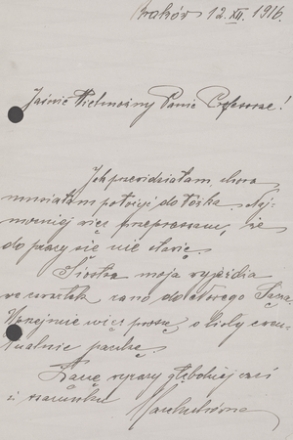 Kraków 12. XII. 1916.
Jaśnie Wielmożny Panie Profesorze!
Jak przewidziałam, chora
musiałam położyć się do łóżka. Naj-
mocniej więc przepraszam, że
do pracy się nie stawię.
Siostra moja wyjeżdża
we czwartek rano do
Uprzejmie więc proszę o listy ewen-
tualnie paczkę.
Łączę wyrazy głębokiej czci
i szacunku